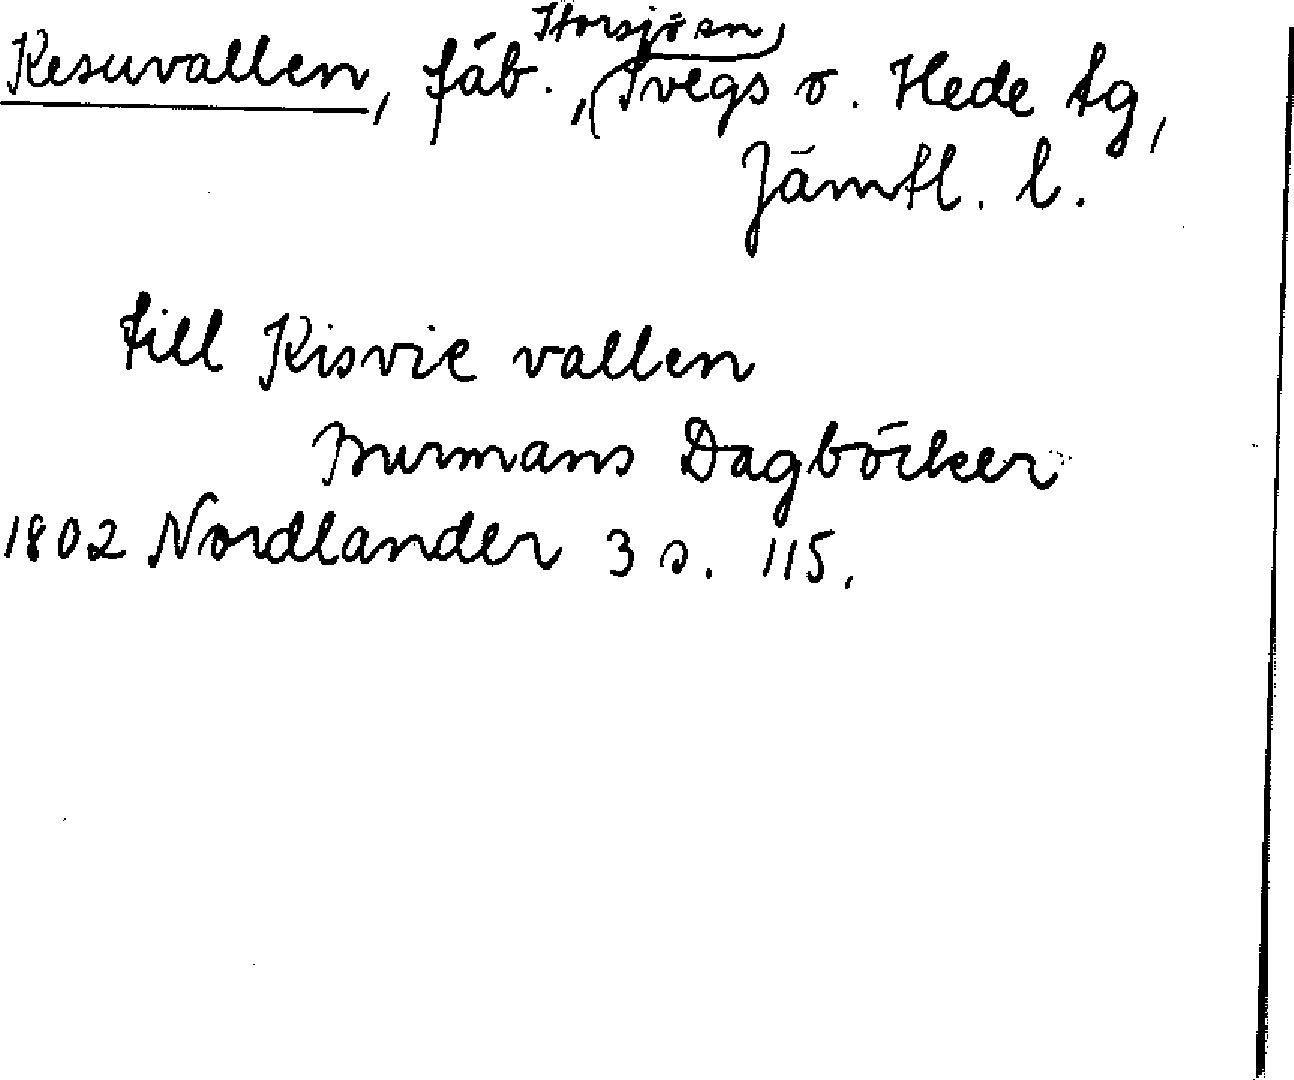 Kesuvallen, fäb., Storsjö sn, Svegs o. Hede tg,
Jämtl. l.
till Kisvie vallen
Burmans Dagböcker
1802 Nordlander 3 s. 115.